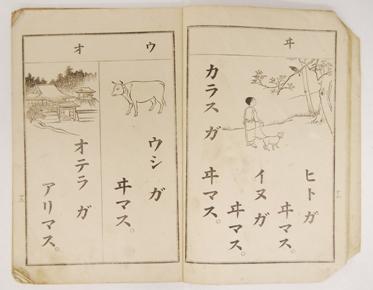 ヰ
ヒトガ
ヰマス。
イヌガ
ヰマス。
カラスガ
ヰマス。
ウ
ウシガ
ヰマス。
オ
オテラガ
アリマス。